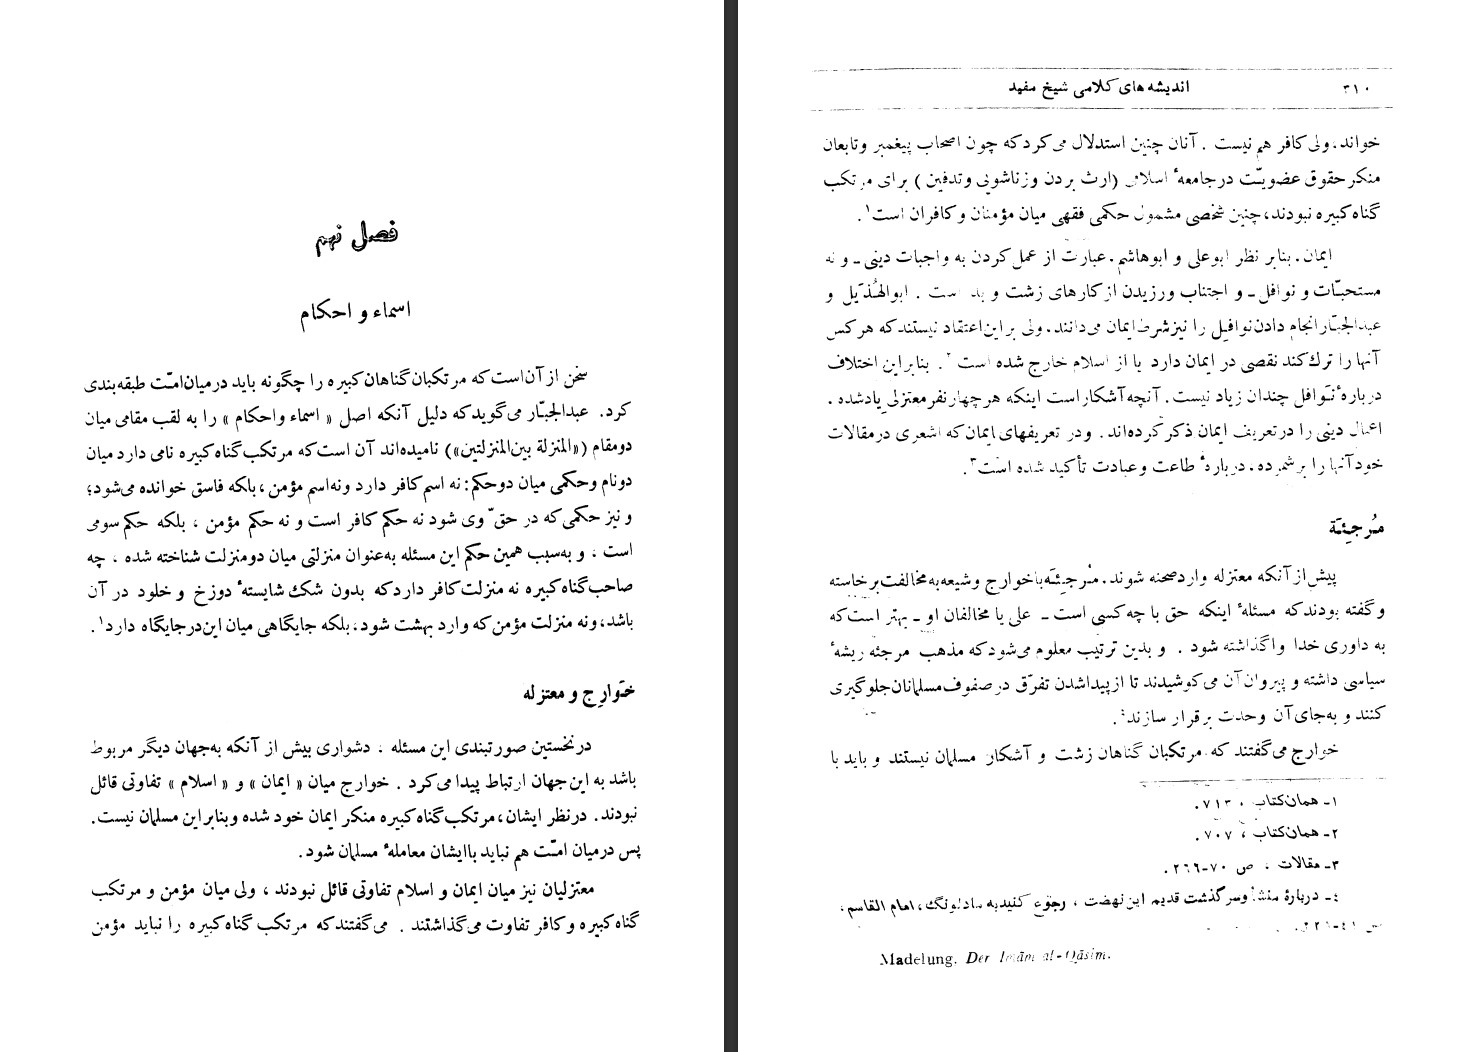 فصل نهم
اسماء و احکام
سخن از آن است که مرتکبان گناهان کبیره را چگونه باید در میان امّت طبقه‌بندی
کرد. عبدالجبّار می‌گوید که دلیل آنکه اصل «اسماء واحکام» را به لقب مقامی میان
دومقام («المنزلة بین‌المنزلتین») نامیده‌اند آن است که مرتکب گناه کبیره نامی دارد میان
دونام وحکمی میان دوحکم: نه اسم کافر دارد ونه اسم مؤمن، بلکه فاسق خوانده می‌شود؛
و نیز حکمی که در حقّ وی شود نه حکم کافر است و نه حکم مؤمن، بلکه حکم سومی
است، و به‌سبب همین حکم این مسئله به‌عنوان منزلتی میان دومنزلت شناخته شده، چه
صاحب گناه کبیره نه منزلت کافر دارد که بدون شک شایستهٔ دوزخ و خلود در آن
باشد، ونه منزلت مؤمن که وارد بهشت شود، بلکه جایگاهی میان این‌در جایگاه دارد۱.
خَوارِج و معتزله
در نخستین صورتبندی این مسئله، دشواری بیش از آنکه به‌جهان دیگر مربوط
باشد به این جهان ارتباط پیدا می‌کرد. خوارج میان «ایمان» و «اسلام» تفاوتی قائل
نبودند. در نظر ایشان، مرتکب گناه کبیره منکر ایمان خود شده وبنابراین مسلمان نیست.
پس در میان امّت هم نباید باایشان معاملهٔ مسلمان شود.
معتزلیان نیز میان ایمان و اسلام تفاوتی قائل نبودند، ولی میان مؤمن و مرتکب
گناه کبیره وکافر تفاوت می‌گذاشتند. می‌گفتند که مرتکب گناه کبیره را نباید مؤمن
۳۱۰ اندیشه‌های کلامی شیخ مفید
خواند، ولی کافر هم نیست. آنان چنین استدلال می‌کرد که چون اصحاب پیغمبر وتابعان
منکر حقوق عضویّت در جامعهٔ اسلامی (ارث بردن وزناشویی وتدفین) برای مرتکب
گناه کبیره نبودند، چنین شخصی مشمول حکمی فقهی میان مؤمنان وکافران است۱.
ایمان، بنابر نظر ابوعلی و ابوهاشم، عبارت از عمل کردن به واجبات دینی ـ و نه
مستحبّات و نوافل ـ و اجتناب ورزیدن از کارهای زشت و بد است. ابوالهُذَیل و
عبدالجبّار انجام دادن نوافل را نیز شرط ایمان می‌دانند، ولی بر این اعتقاد نیستند که هرکس
آنها را ترک کند نقصی در ایمان دارد یا از اسلام خارج شده است۲. بنابراین اختلاف
دربارهٔ نَوافل چندان زیاد نیست. آنچه آشکار است اینکه هر چهار نفر معتزلی یادشده،
اعمال دینی را در تعریف ایمان ذکر کرده‌اند. ودر تعریفهای ایمان که اشعری در مقالات
خود آنها را برشمرده، دربارهٔ طاعت وعبادت تأکید شده است۳.
مُرجِئَة
پیش از آنکه معتزله وارد صحنه شوند، مُرجِئَه با خوارج وشیعه به مخالفت برخاسته
وگفته بودند که مسئلهٔ اینکه حق با چه کسی است ـ علی یا مخالفان او ـ بهتر است که
به داوری خدا واگذاشته شود. و بدین ترتیب معلوم می‌شود که مذهب مرجئه ریشهٔ
سیاسی داشته و پیروان آن می‌کوشیدند تا از پیداشدن تفرّق در صفوف مسلمانان جلوگیری
کنند و به‌جای آن وحدت برقرار سازند۴.
خوارج می‌گفتند که مرتکبان گناهان زشت و آشکار مسلمان نیستند و باید با
۱ـ همان کتاب، ۷۱۳.
۲ـ همان کتاب، ۷۰۷.
۳ـ مقالات، ص ۷۰-۲۶۶.
۴ـ دربارهٔ منشأ وسرگذشت قدیم این نهضت، رجوع کنید به مادلونگ، امام القاسم،
Madelung, Der Imām al-Qāsim.